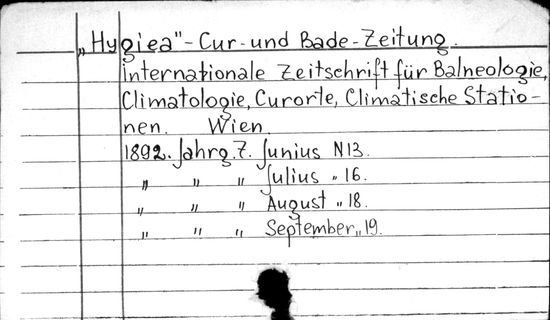 „Hygiea"-Cur-und Bade-Zeitung.
internationale Zeitschrift für Balneologie,
Climatologie, Curorte, Climatische Statio-
nen. Wien
1892. Jahrg. 7. Junius N13.
„ „ „ Julius „ 16.
„ „ „ August „ 18.
„ „ „ September „ 19.